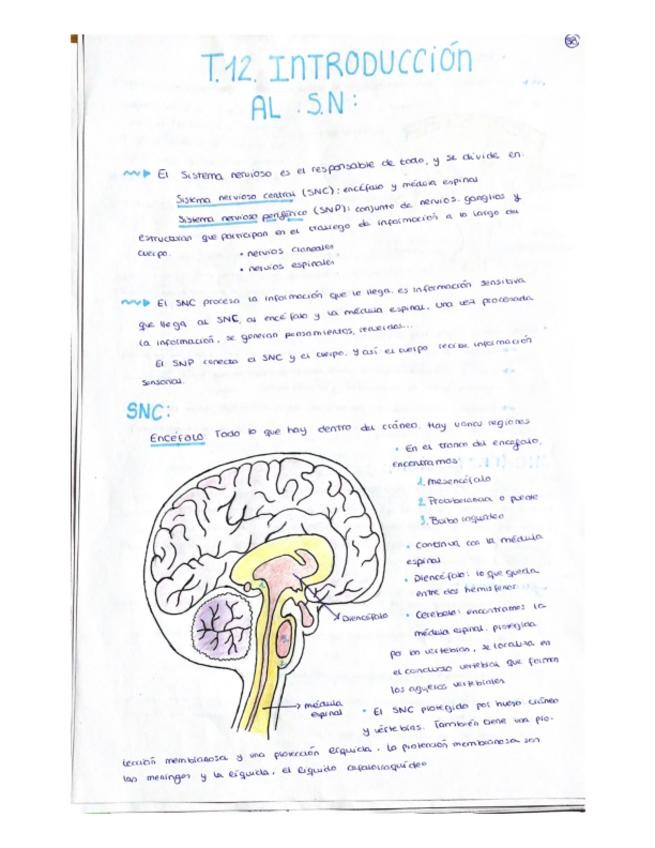 58
T.12. INTRODUCCIÓN
AL S.N:
El Sistema nervioso es el responsable de todo, y se divide en:
Sistema nervioso central (SNC): encéfalo y médula espinal
Sistema nervioso periférico (SNP): conjunto de nervios, ganglios y
estructuras que participan en el trasiego de información a lo largo del
cuerpo.
• nervios craneales
• nervios espinales
El SNC procesa la información que le llega, es información sensitiva
que llega al SNC, al encéfalo y la médula espinal. Una vez procesada
la información, se generan pensamientos, recuerdos...
El SNP conecta el SNC y el cuerpo. Y así el cuerpo recibe información
sensorial.
SNC:
Encéfalo: Todo lo que hay dentro del cráneo. Hay varias regiones
• En el tronco del encéfalo,
encontramos:
1. Mesencéfalo
2. Protuberancia o puente
3. Bulbo raquídeo
• Continua con la médula
espinal
• Diencéfalo: lo que queda
entre dos hemisferios
Diencéfalo
• Cerebelo: encontramos la
médula espinal, protegida
por las vertebras, se localiza en
el conducto vertebral que forman
los agujeros vertebrales
médula
espinal
• El SNC protegido por hueso cráneo
y vértebras. También tiene una pro-
tección membranosa y una protección líquida. La protección membranosa son
las meninges y la líquida, el líquido cefalorraquídeo